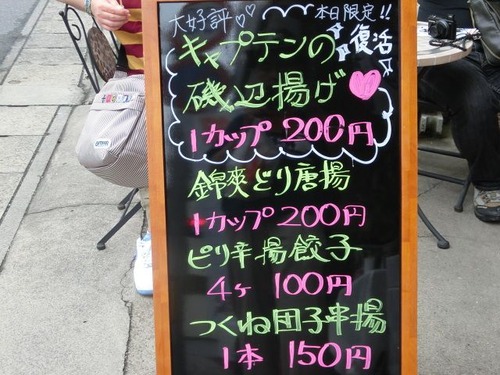 大好評♡♡ 本日限定!!
復活
キャプテンの
磯辺揚げ
1カップ 200円
錦爽どり唐揚
1カップ 200円
ピリ辛揚餃子
4ヶ 100円
つくね団子串揚
1本 150円